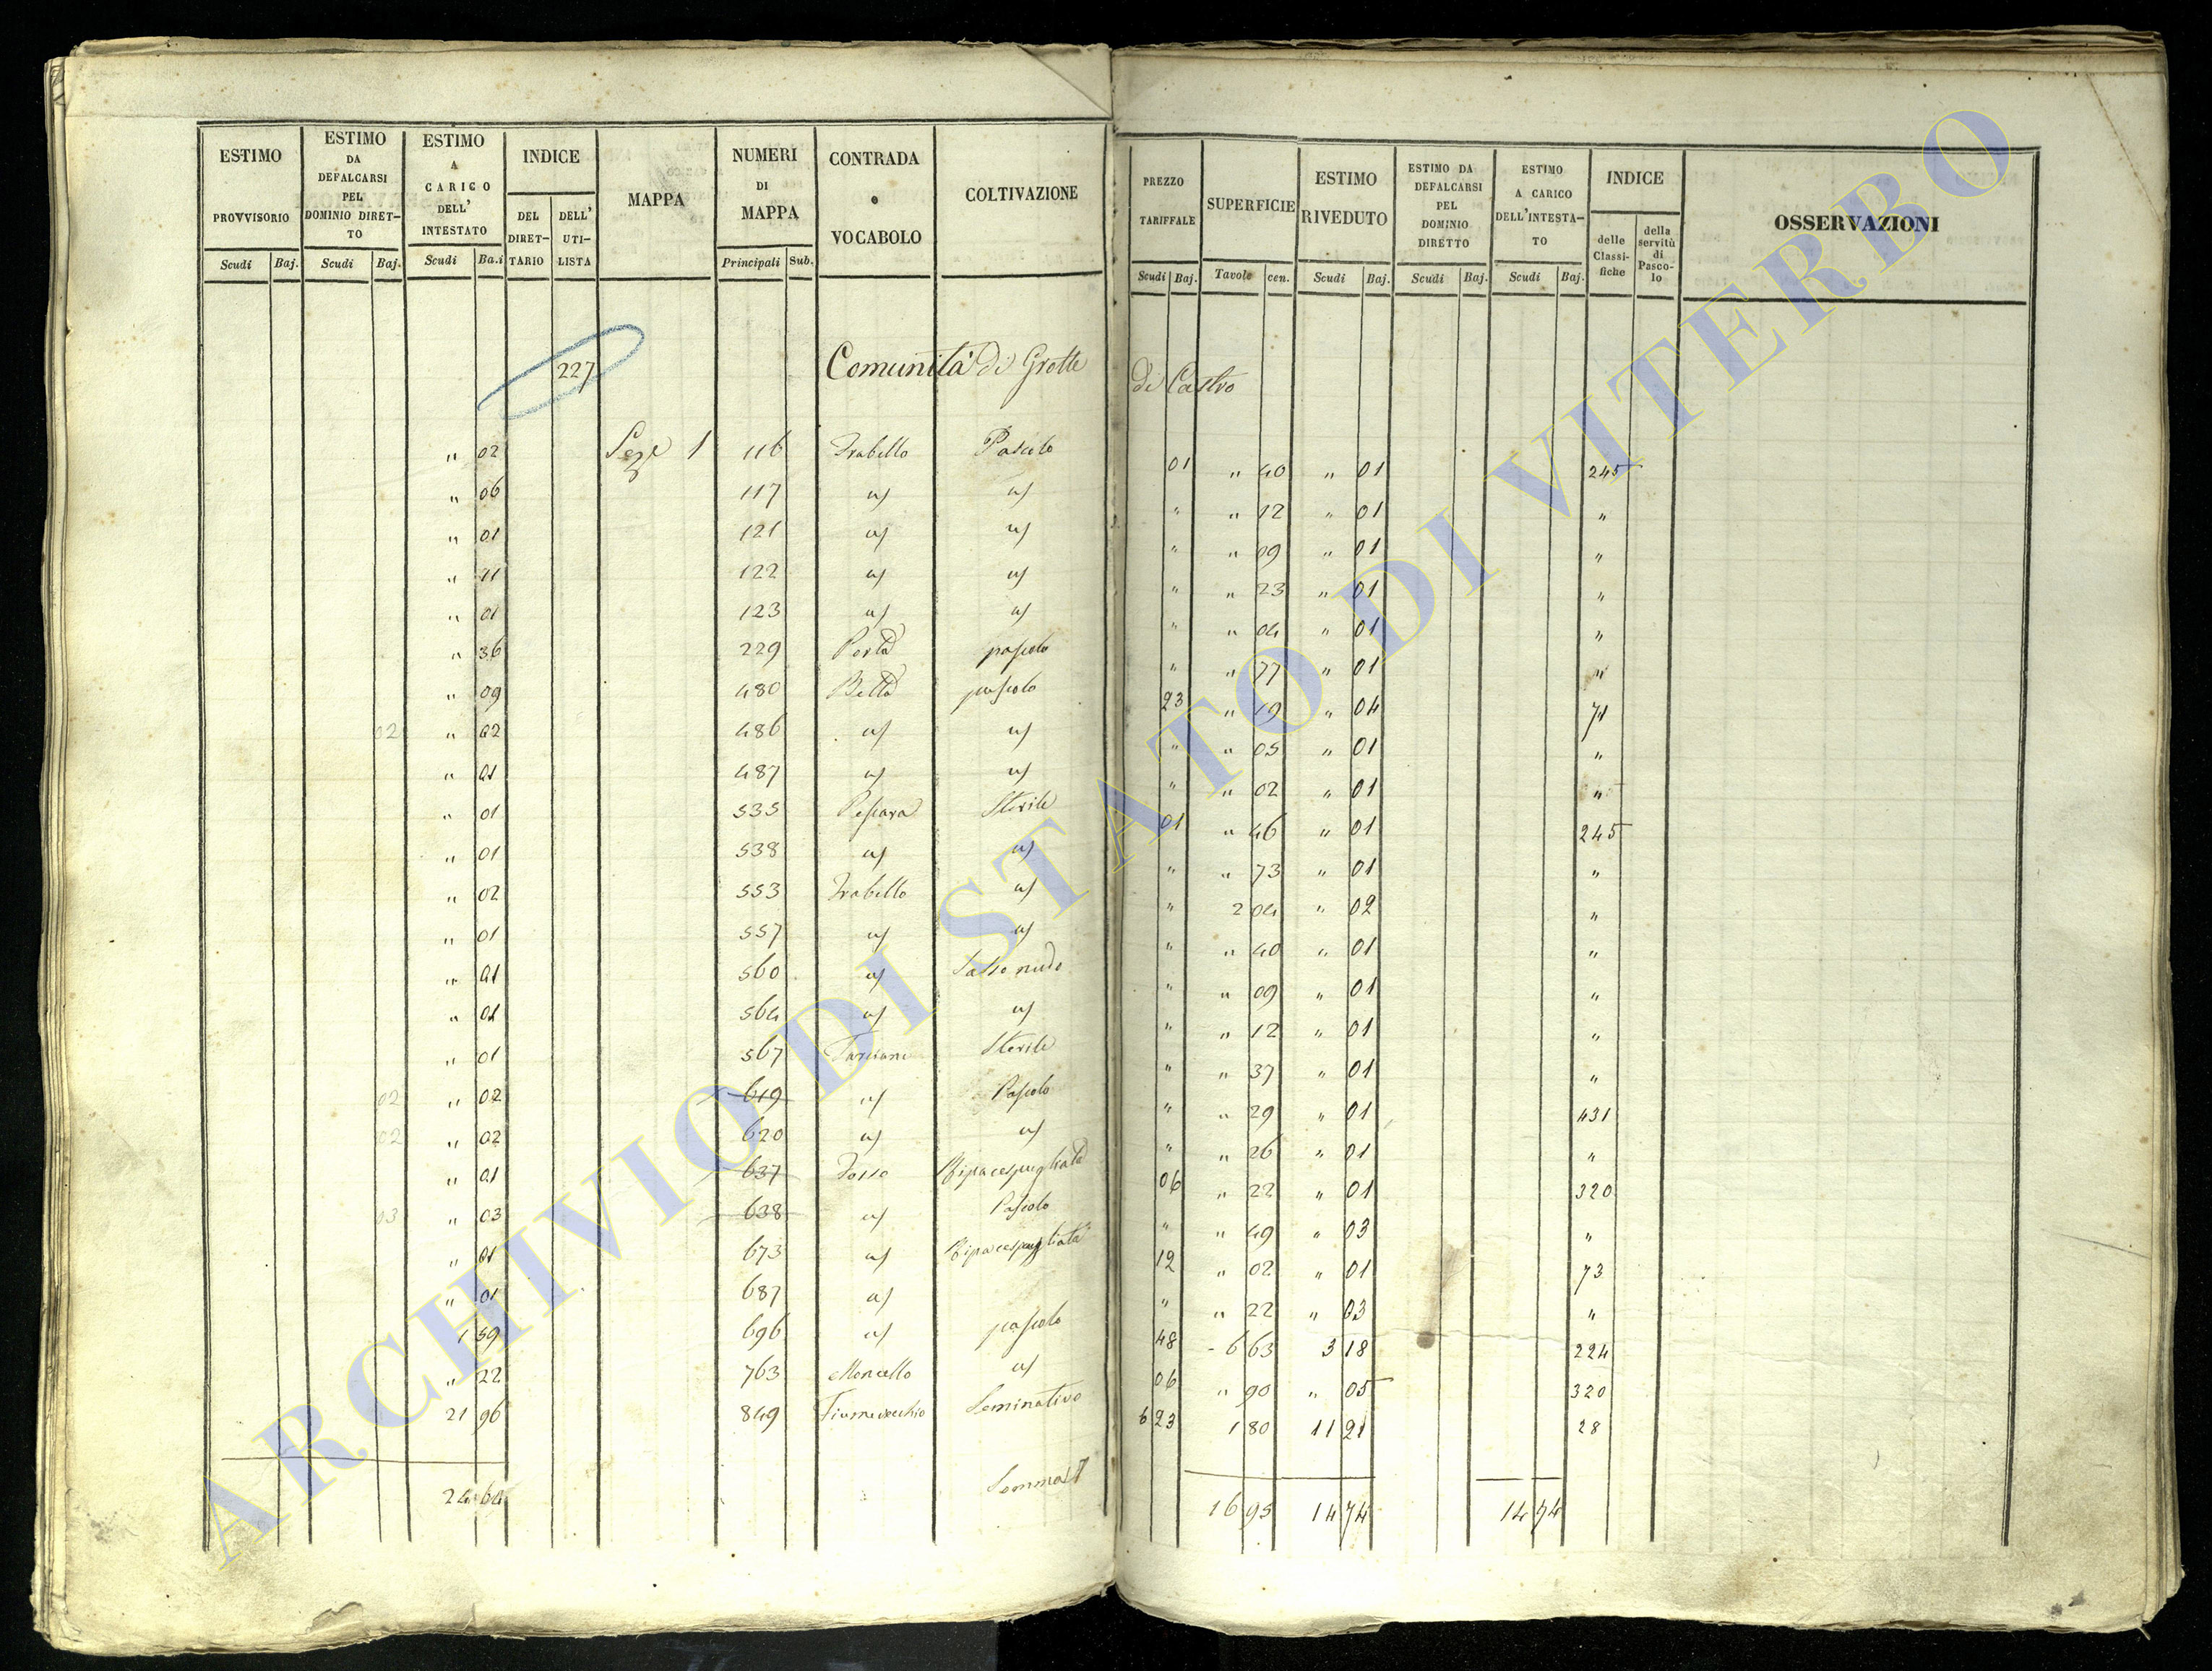 ESTIMO PROVVISORIO | ESTIMO DA DEFALCARSI PEL DOMINIO DIRETTO | ESTIMO A CARICO DELL' INTESTATO | INDICE | MAPPA | NUMERI DI MAPPA | CONTRADA o VOCABOLO | COLTIVAZIONE | PREZZO TARIFFALE | SUPERFICIE | ESTIMO RIVEDUTO | ESTIMO DA DEFALCARSI PEL DOMINIO DIRETTO | ESTIMO A CARICO DELL'INTESTATO | INDICE | OSSERVAZIONI
DEL DIRETTARIO | DELL' UTILISTA | delle Classifiche | della servitù di Pascolo
Scudi | Baj. | Scudi | Baj. | Scudi | Ba.i | Principali | Sub. | Scudi | Baj. | Tavole | cen. | Scudi | Baj. | Scudi | Baj. | Scudi | Baj.
227 Comunità di Grotte di Castro
" 02 | 1 | 116 | Trabello | Pascolo | 01 | " 40 | " 01 | 245
" 06 | 117 | " | " | " | " 12 | " 01 | "
" 01 | 121 | " | " | " | " 09 | " 01 | "
" 11 | 122 | " | " | " | " 23 | " 01 | "
" 01 | 123 | " | " | " | " 04 | " 01 | "
" 36 | 229 | Porta | pascolo | " | " 77 | " 01 | "
" 09 | 480 | Bella | pascolo | 23 | " 19 | " 04 | 71
02 | " 02 | 486 | " | " | " | " 05 | " 01 | "
" 01 | 487 | " | " | " | " 02 | " 01 | "
" 01 | 535 | Pescara | Sterile | 01 | " 46 | " 01 | 245
" 01 | 538 | " | " | " | " 73 | " 01 | "
" 02 | 553 | Trabello | " | " | 2 04 | " 02 | "
" 01 | 557 | " | " | " | " 40 | " 01 | "
" 01 | 560 | " | Sasso nudo | " | " 09 | " 01 | "
" 01 | 564 | " | " | " | " 12 | " 01 | "
" 01 | 567 | Sterile | " | " 37 | " 01 | "
02 | " 02 | 619 | " | Pascolo | " | " 29 | " 01 | 431
02 | " 02 | 620 | " | " | " | " 26 | " 01 | "
" 01 | 637 | Fosso | Ripa cespugliata | 06 | " 22 | " 01 | 320
03 | " 03 | 638 | " | Pascolo | " | " 49 | " 03 | "
" 01 | 673 | " | Ripa cespugliata | 12 | " 02 | " 01 | 73
" 01 | 687 | " | " | " 22 | " 03 | "
1 59 | 696 | " | pascolo | 48 | 6 63 | 3 18 | 224
" 22 | 763 | Moncello | " | 06 | " 90 | " 05 | 320
21 96 | 849 | Fiumevecchio | Seminativo | 6 23 | 1 80 | 11 21 | 28
24 64 | 16 95 | 14 74 | 14 74
ARCHIVIO DI STATO DI VITERBO